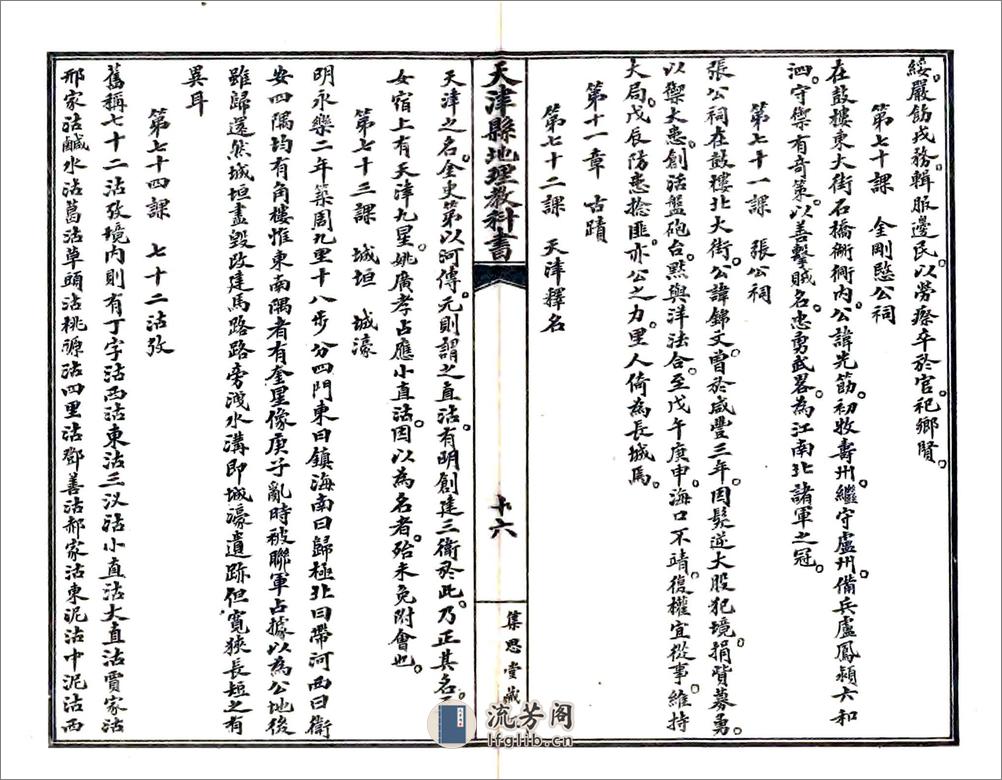 綏。嚴飭戎務。輯服邊民。以勞瘵卒於官。祀鄉賢。
第七十課　金剛愍公祠
在鼓樓東大街石橋衚衕內。公諱光筯。初牧壽州。繼守盧州。備兵盧鳳潁六和
泗。守禦有奇策。以善擊賊名。忠勇武畧。為江南北諸軍之冠。
第七十一課　張公祠
張公祠在鼓樓北大街。公諱錦文。曾於咸豐三年。因髮逆大股犯境。捐貲募勇。
以禦大患。創活盤砲台。㸃與洋法合。至戊午庚申。海口不靖。復權宜從事。維持
大局。戊辰防患捻匪。亦公之力。里人倚為長城焉。
第十一章　古蹟
第七十二課　天津釋名
天津縣地理教科書
十六
集思堂藏
天津之名。金史第以河傳。元則謂之直沽。有明創建三衛於此。乃正其名。
女宿上有天津九星。姚廣孝占應小直沽。因以為名者。殆未免附會也。
第七十三課　城垣　城濠
明永樂二年築周九里十八步分四門東曰鎮海南曰歸極北曰帶河西曰衛
安四隅均有角樓惟東南隅者有奎星像庚子亂時被聯軍占據以為公地後
雖歸還然城垣盡毀改建馬路路旁洩水溝即城濠遺跡但寬狹長短之有
異耳
第七十四課　七十二沽攷
舊稱七十二沽攷境內則有丁字沽西沽東沽三汊沽小直沽大直沽賈家沽
邢家沽鹹水沽葛沽草頭沽桃源沽四里沽鄧善沽郝家沽東泥沽中泥沽西
流芳阁
lfglib.cn